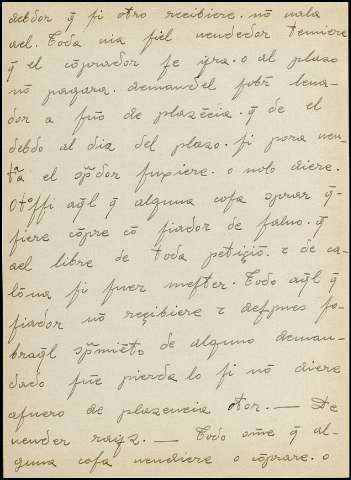 debdor q̃ fi otro recibiere. nõ uala
del. Toda uia fiel uendedor temiere
q̃ el cõprador fe yra. o al plazo
nõ pagara. demandel fobre leua-
dor a fuo de plazẽcia. q̃ de el
debdo al dia del plazo. fi pora uen-
ta el fuxiere. o nolo diere.
Otoffi aql̃ q̃ alguna cofa cprar q̃-
fiere cõpre cõ fiador de faluo. q̃
del libre de toda petiçiõ. τ de ca-
lõna fi fuer mefter. Todo aql̃ q̃
fiador nõ reçibiere τ defpues fo-
braql̃ de alguno deman-
dado fue pierda lo fi nõ diere
afuero de plazencia otor. — De
uender raiz. — Todo ome q̃ al-
guna cofa uendiere o cõprare. o